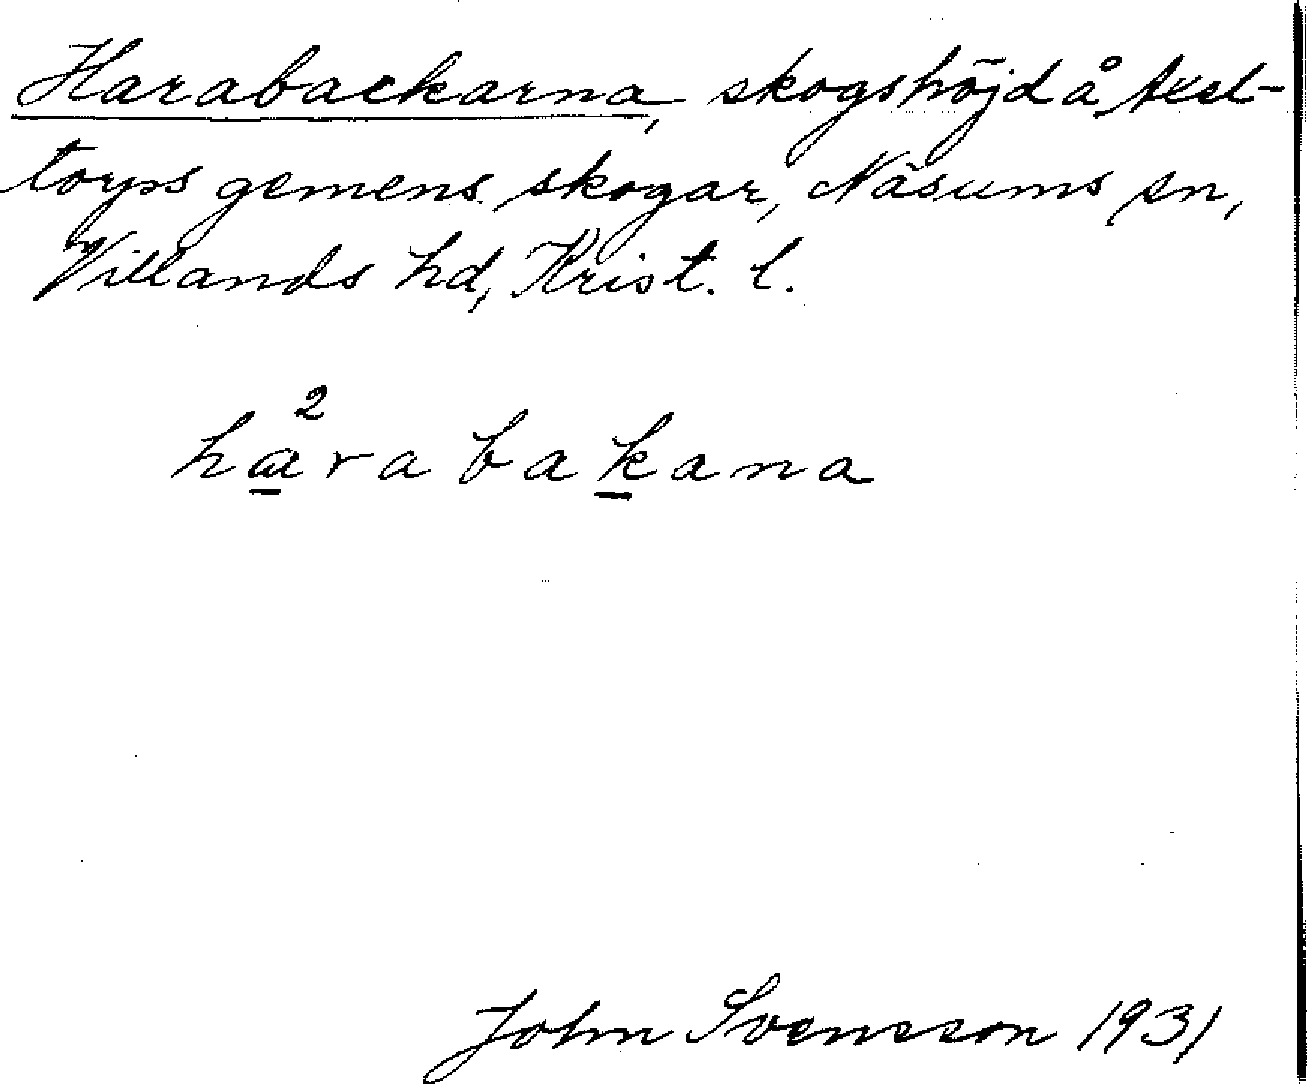 Harabackarna, skogshöjd å Axel-
torps gemens. skogar, Näsums sn,
Villands hd, Krist. l.
2
hɑ̲rabak̲ana
John Svensson 1931